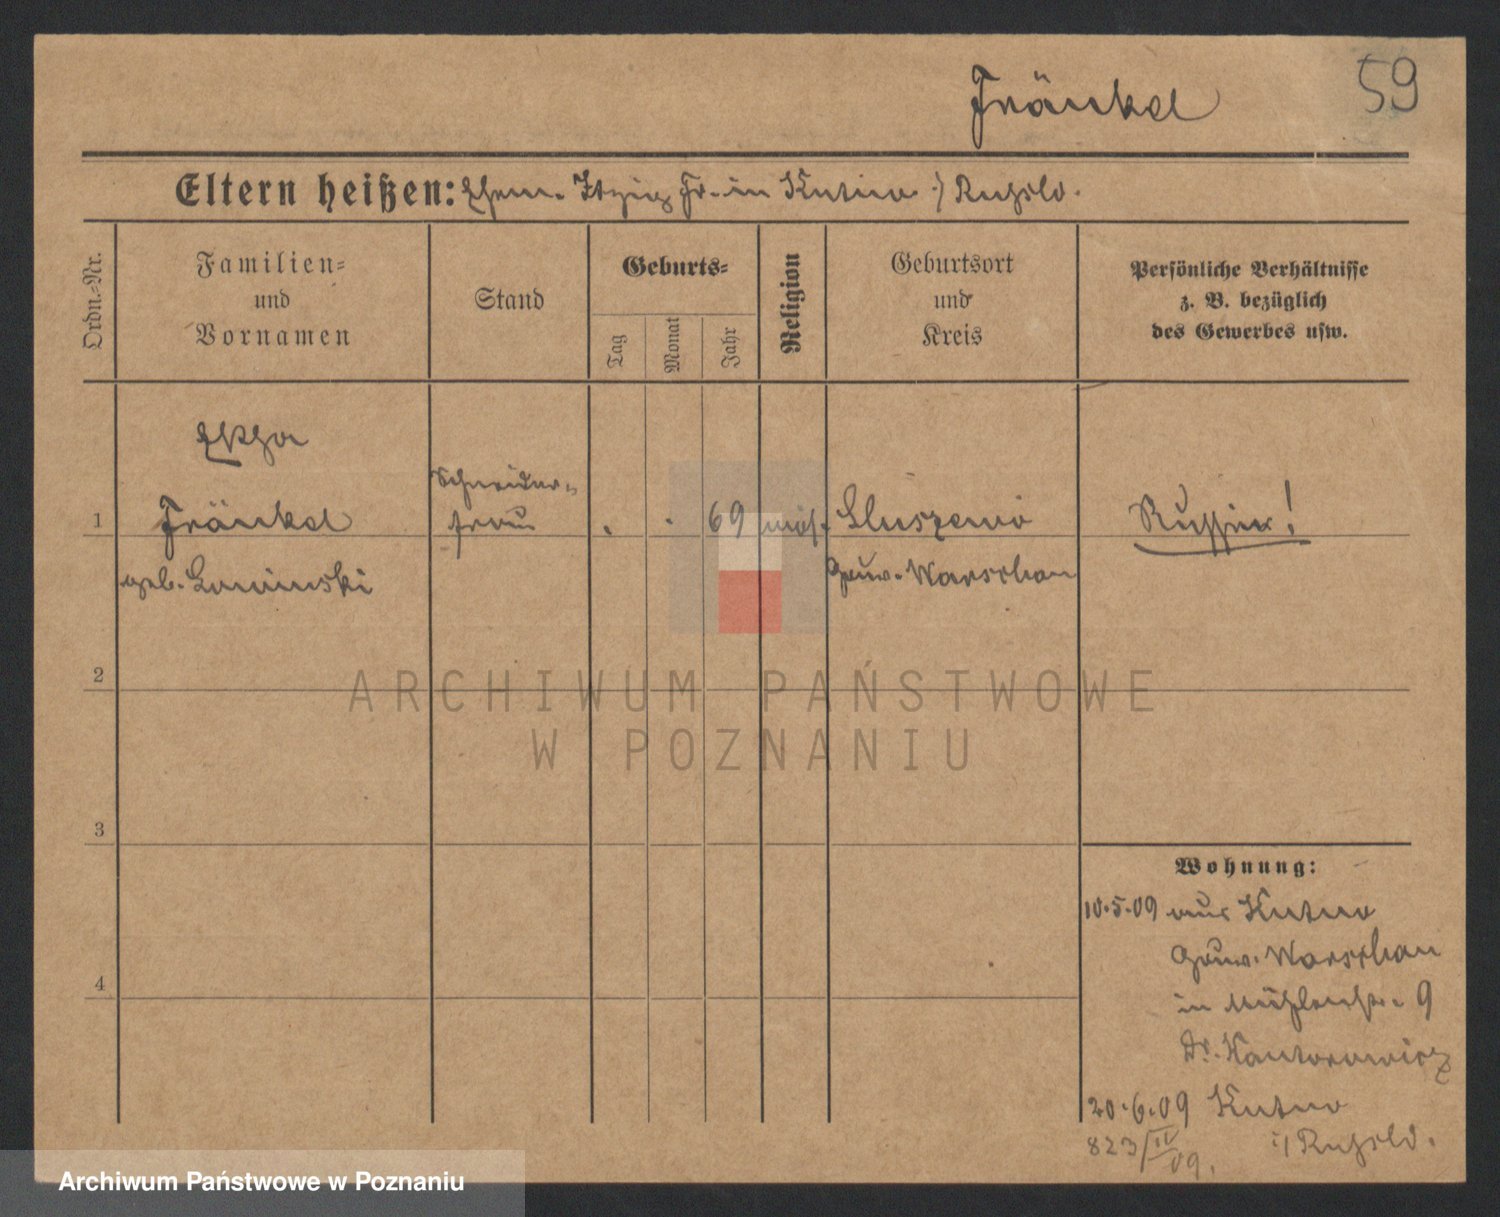 Fränkel 59
Eltern heißen: Ehem. Itzig Fr. in Kutno i/ Rußld.
Ordn.-Nr.
Familien-
und
Vornamen
Stand
Geburts-
Tag
Monat
Jahr
Religion
Geburtsort
und
Kreis
Persönliche Verhältnisse
z. B. bezüglich
des Gewerbes usw.
Schneider-
1 Fränkel frau . . 69 mos. Russin!
geb. Gouv. Warschau
2
ARCHIWUM PAŃSTWOWE
W POZNANIU
3
Wohnung:
10.5.09 aus Kutno
Gouv. Warschau
4
in Mühlenstr. 9
Dr. Kantorowicz
20.6.09 Kutno
823/IV 09. i/ Rußld.
Archiwum Państwowe w Poznaniu